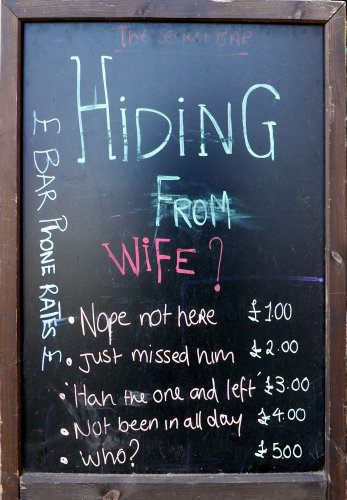 The Secret BAR
HiDiNG
FROM
WiFE?
£ BAR PHONE RATES £
• Nope not here £1.00
• Just missed him £2.00
• 'Had the one and left' £3.00
• Not been in all day £4.00
• Who? £5.00